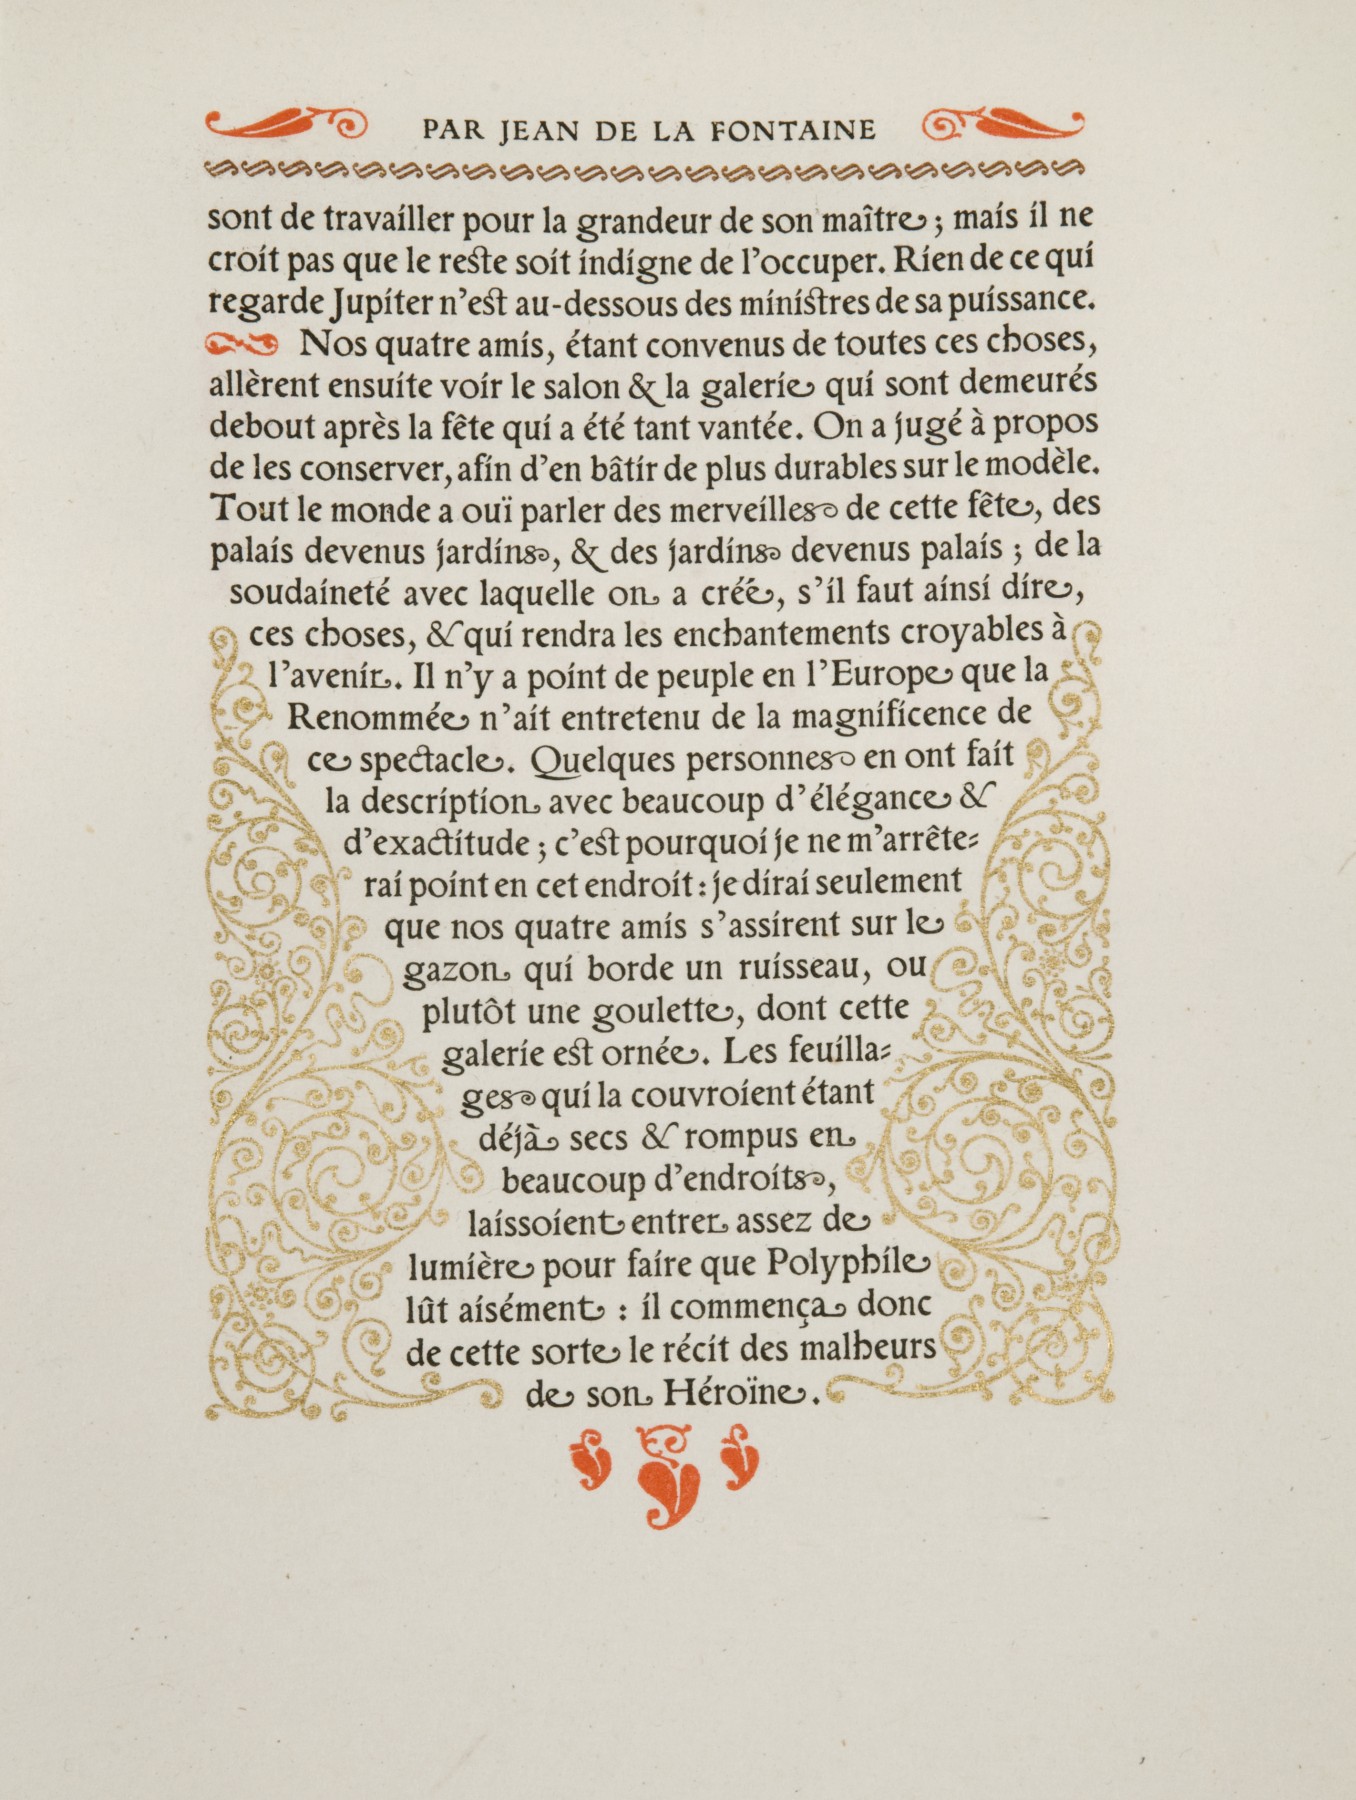 PAR JEAN DE LA FONTAINE
sont de travailler pour la grandeur de son maître ; mais il ne
croit pas que le reste soit indigne de l'occuper. Rien de ce qui
regarde Jupiter n'est au-dessous des ministres de sa puissance.
Nos quatre amis, étant convenus de toutes ces choses,
allèrent ensuite voir le salon & la galerie qui sont demeurés
debout après la fête qui a été tant vantée. On a jugé à propos
de les conserver, afin d'en bâtir de plus durables sur le modèle.
Tout le monde a ouï parler des merveilles de cette fête, des
palais devenus jardins, & des jardins devenus palais ; de la
soudaineté avec laquelle on a créé, s'il faut ainsi dire,
ces choses, & qui rendra les enchantements croyables à
l'avenir. Il n'y a point de peuple en l'Europe que la
Renommée n'ait entretenu de la magnificence de
ce spectacle. Quelques personnes en ont fait
la description avec beaucoup d'élégance &
d'exactitude ; c'est pourquoi je ne m'arrête-
rai point en cet endroit : je dirai seulement
que nos quatre amis s'assirent sur le
gazon qui borde un ruisseau, ou
plutôt une goulette, dont cette
galerie est ornée. Les feuilla-
ges qui la couvroient étant
déjà secs & rompus en
beaucoup d'endroits,
laissoient entrer assez de
lumière pour faire que Polyphile
lût aisément : il commença donc
de cette sorte le récit des malheurs
de son Héroïne.